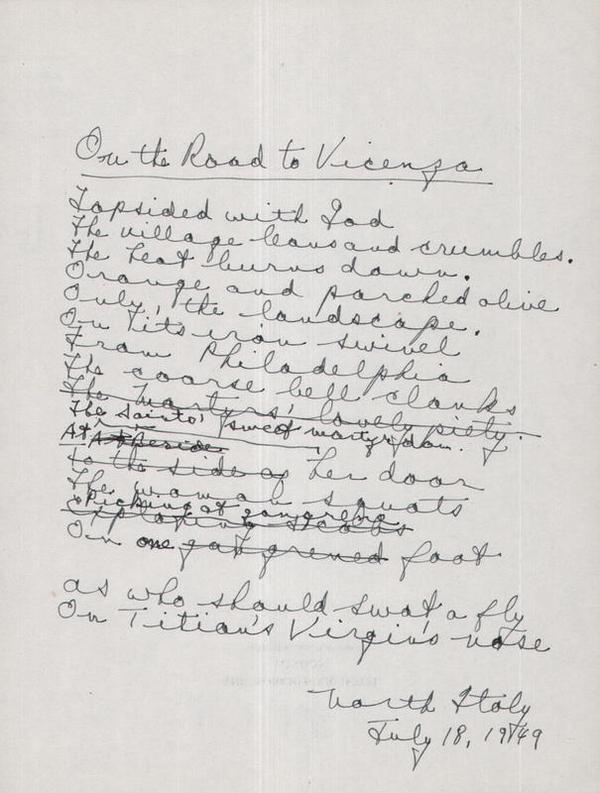 On the Road to Vicenza
Lopsided with God
The village leans and crumbles.
The heat burns down.
Orange and parched olive
Only, the landscape.
On its iron swivel
From Philadelphia
The coarse bell clanks
The martyrs' lovely piety.
The Saints' sweet martyrdom.
At Beside
to the side of her door
The woman squats
Picking at gangrene
Exploring scabs
On one gangrened foot
as who should swat a fly
On Titian's Virgin's nose
North Italy
July 18, 1949